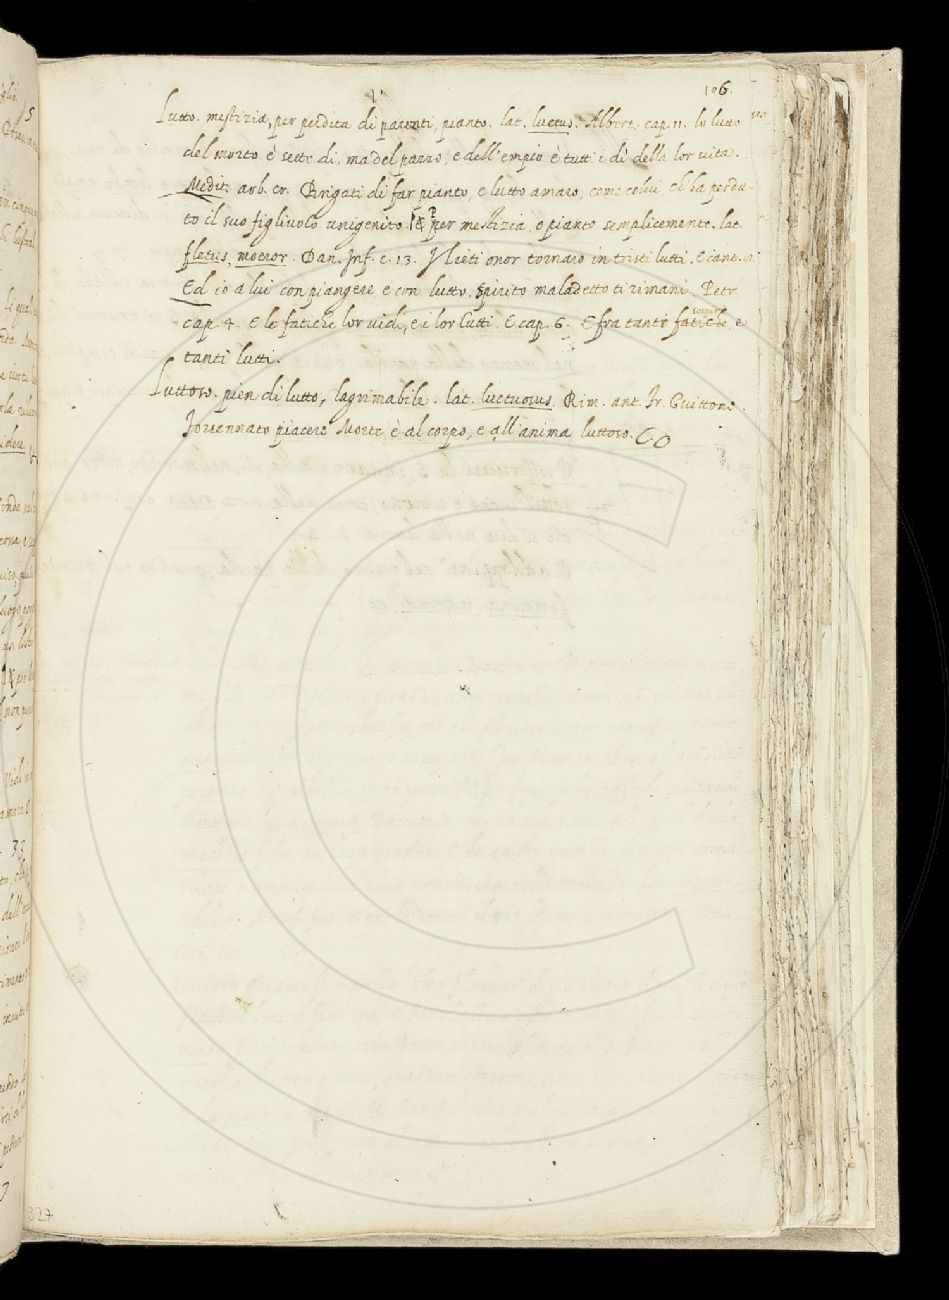 106.
Lutto. mestizia, per perdita di parenti, pianto. lat. luctus. Albert. cap. 11. lo lutto
del morto è sette dì, ma del pazzo, e dell'empio è tutti i dì della lor vita.
Medit. arb. cr. Brigati di far pianto, e lutto amaro, come colui ch'ha perdu-
to il suo figliuolo unigenito. per mestizia, o pianto semplicemente. lat.
fletus, moeror. Dan. Inf. c. 13. I lieti onor tornaro in tristi lutti. E cant. 8.
Ed io a lui con piangere e con lutto, spirito maladetto ti rimani. Petr
cap. 4. E le fatiche lor vidi, e i lor lutti. E cap. 6. E fra tanti e
tanti lutti.
Luttoso. pien di lutto, lagrimabile. lat. luctuosus. Rim. ant. Fr. Guittone.
Forsennato piacere Morte è al corpo, e all'anima luttoso.
327